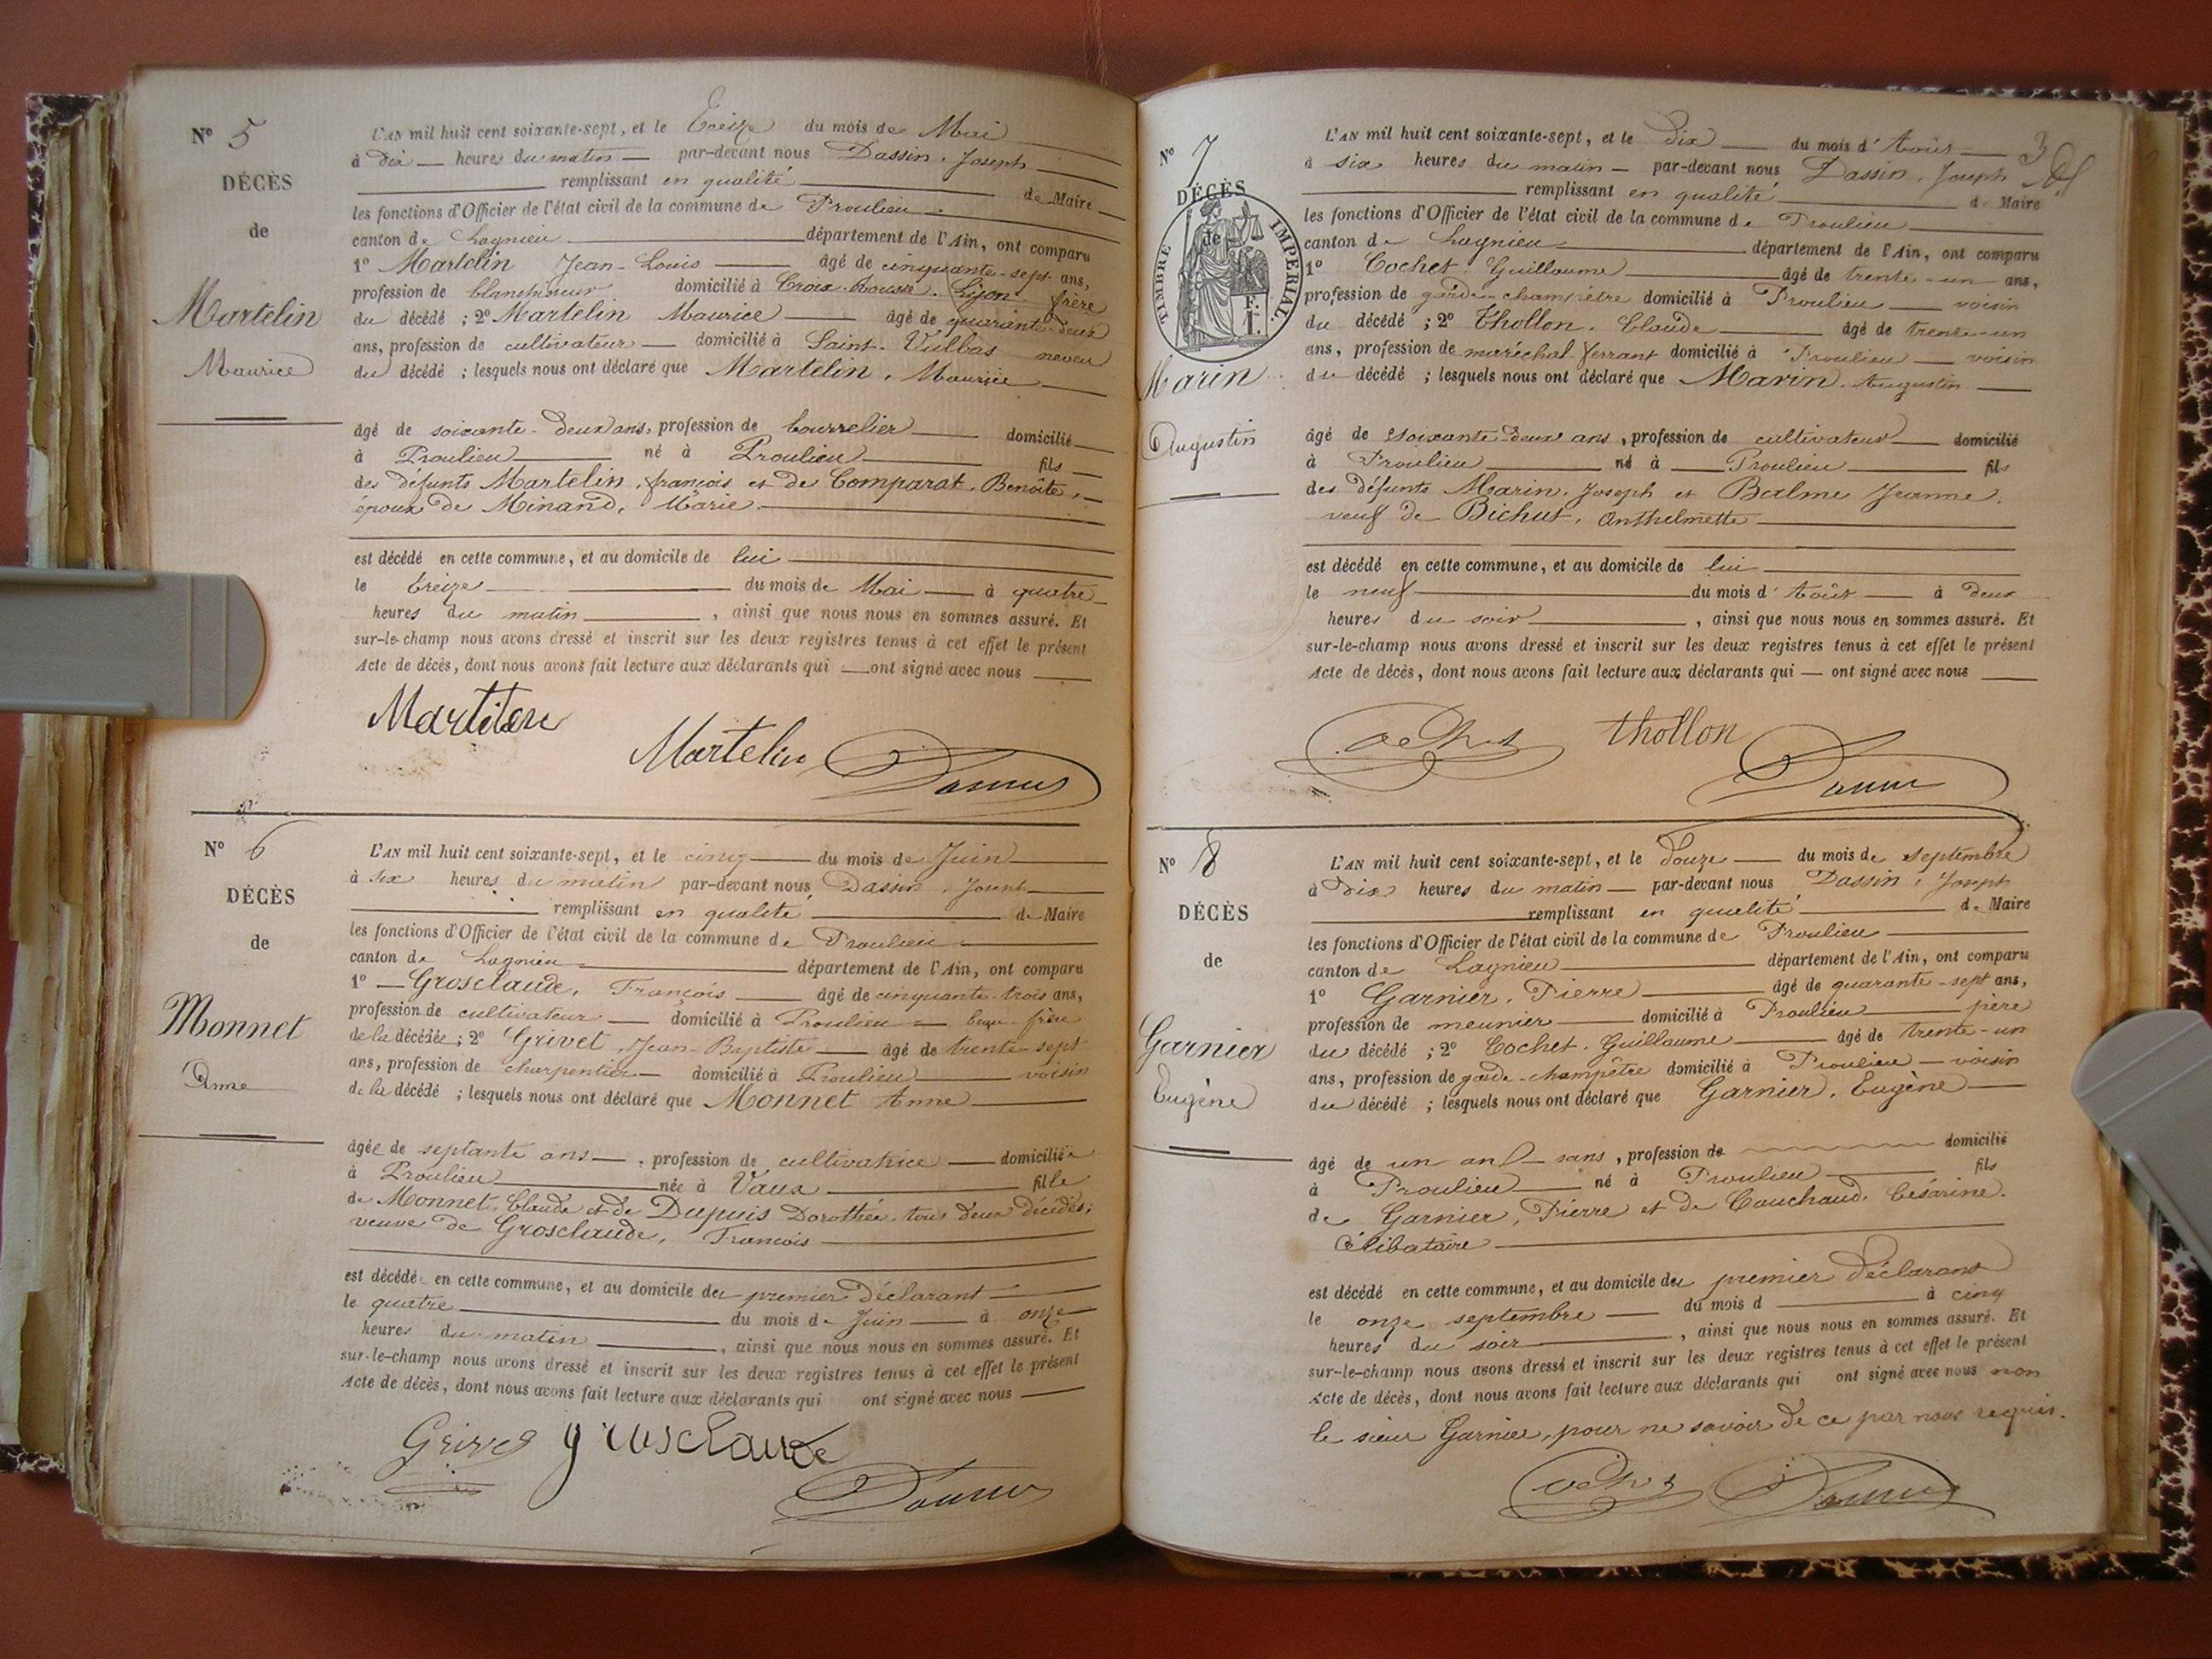 N° 5
DÉCÈS
de
Martelin
Maurice
L'AN mil huit cent soixante-sept, et le treize du mois de Mai
à dix heures du matin par-devant nous Dassin, Joseph
remplissant en qualité de Maire
les fonctions d'Officier de l'état civil de la commune de Proulieu
canton de Lagnieu département de l'Ain, ont comparu
1° Martelin Jean-Louis âgé de cinquante-sept ans,
profession de blanchisseur domicilié à Croix-Rousse, Lyon frère
du décédé ; 2° Martelin Maurice âgé de quarante-deux
ans, profession de cultivateur domicilié à Saint-Vulbas neveu
du décédé ; lesquels nous ont déclaré que Martelin, Maurice
âgé de soixante-deux ans, profession de bourrelier domicilié
à Proulieu né à Proulieu fils
des défunts Martelin, françois et de Comparat, Benoîte,
époux de Minand, Marie
est décédé en cette commune, et au domicile de lui
le treize du mois de Mai à quatre
heures du matin, ainsi que nous nous en sommes assuré. Et
sur-le-champ nous avons dressé et inscrit sur les deux registres tenus à cet effet le présent
Acte de décès, dont nous avons fait lecture aux déclarants qui ont signé avec nous
Martelin
Martelin
N° 6
DÉCÈS
de
Monnet
Anne
L'AN mil huit cent soixante-sept, et le cinq du mois de Juin
à six heures du matin par-devant nous Dassin, Joseph
remplissant en qualité de Maire
les fonctions d'Officier de l'état civil de la commune de Proulieu
canton de Lagnieu département de l'Ain, ont comparu
1° Grosclaude, François âgé de cinquante-trois ans,
profession de cultivateur domicilié à Proulieu beau-frère
de la décédée ; 2° Grivet, Jean-Baptiste âgé de trente-sept
ans, profession de charpentier domicilié à Proulieu voisin
de la décédé ; lesquels nous ont déclaré que Monnet Anne
âgée de septante ans, profession de cultivatrice domiciliée
à Proulieu née à Vaux fille
de Monnet, Claude et de Dupuis Dorothée, tous deux décédés,
veuve de Grosclaude, François
est décédé en cette commune, et au domicile du premier déclarant
le quatre du mois de Juin à onze
heures du matin, ainsi que nous nous en sommes assuré. Et
sur-le-champ nous avons dressé et inscrit sur les deux registres tenus à cet effet le présent
Acte de décès, dont nous avons fait lecture aux déclarants qui ont signé avec nous
Grivet grosclaude
N° 7
DÉCÈS
de
TIMBRE IMPÉRIAL
F.
1.
Marin
Augustin
L'AN mil huit cent soixante-sept, et le dix du mois d'Août 3
à six heures du matin par-devant nous Dassin, Joseph
remplissant en qualité de Maire
les fonctions d'Officier de l'état civil de la commune de Proulieu
canton de Lagnieu département de l'Ain, ont comparu
1° Cochet, Guillaume âgé de trente-un ans,
profession de garde-champêtre domicilié à Proulieu voisin
du décédé ; 2° Thollon, Claude âgé de trente-un
ans, profession de maréchal-ferrant domicilié à Proulieu voisin
du décédé ; lesquels nous ont déclaré que Marin, Augustin
âgé de soixante-deux ans, profession de cultivateur domicilié
à Proulieu né à Proulieu fils
des défunts Marin, Joseph et Balme Jeanne,
veuf de Bichut, Anthelmette
est décédé en cette commune, et au domicile de lui
le neuf du mois d'Août à deux
heures du soir, ainsi que nous nous en sommes assuré. Et
sur-le-champ nous avons dressé et inscrit sur les deux registres tenus à cet effet le présent
Acte de décès, dont nous avons fait lecture aux déclarants qui ont signé avec nous
thollon
N° 8
DÉCÈS
de
Garnier
Eugène
L'AN mil huit cent soixante-sept, et le douze du mois de septembre
à dix heures du matin par-devant nous Dassin, Joseph
remplissant en qualité de Maire
les fonctions d'Officier de l'état civil de la commune de Proulieu
canton de Lagnieu département de l'Ain, ont comparu
1° Garnier, Pierre âgé de quarante-sept ans,
profession de meunier domicilié à Proulieu père
du décédé ; 2° Cochet, Guillaume âgé de trente-un
ans, profession de garde-champêtre domicilié à Proulieu voisin
du décédé ; lesquels nous ont déclaré que Garnier, Eugène
âgé de un an sans, profession de domicilié
à Proulieu né à Proulieu fils
de Garnier, Pierre et de Cauchaud, Césarine,
Célibataire
est décédé en cette commune, et au domicile du premier déclarant
le onze septembre du mois d à cinq
heures du soir, ainsi que nous nous en sommes assuré. Et
sur-le-champ nous avons dressé et inscrit sur les deux registres tenus à cet effet le présent
Acte de décès, dont nous avons fait lecture aux déclarants qui ont signé avec nous non
le sieur Garnier, pour ne savoir de ce par nous requis.